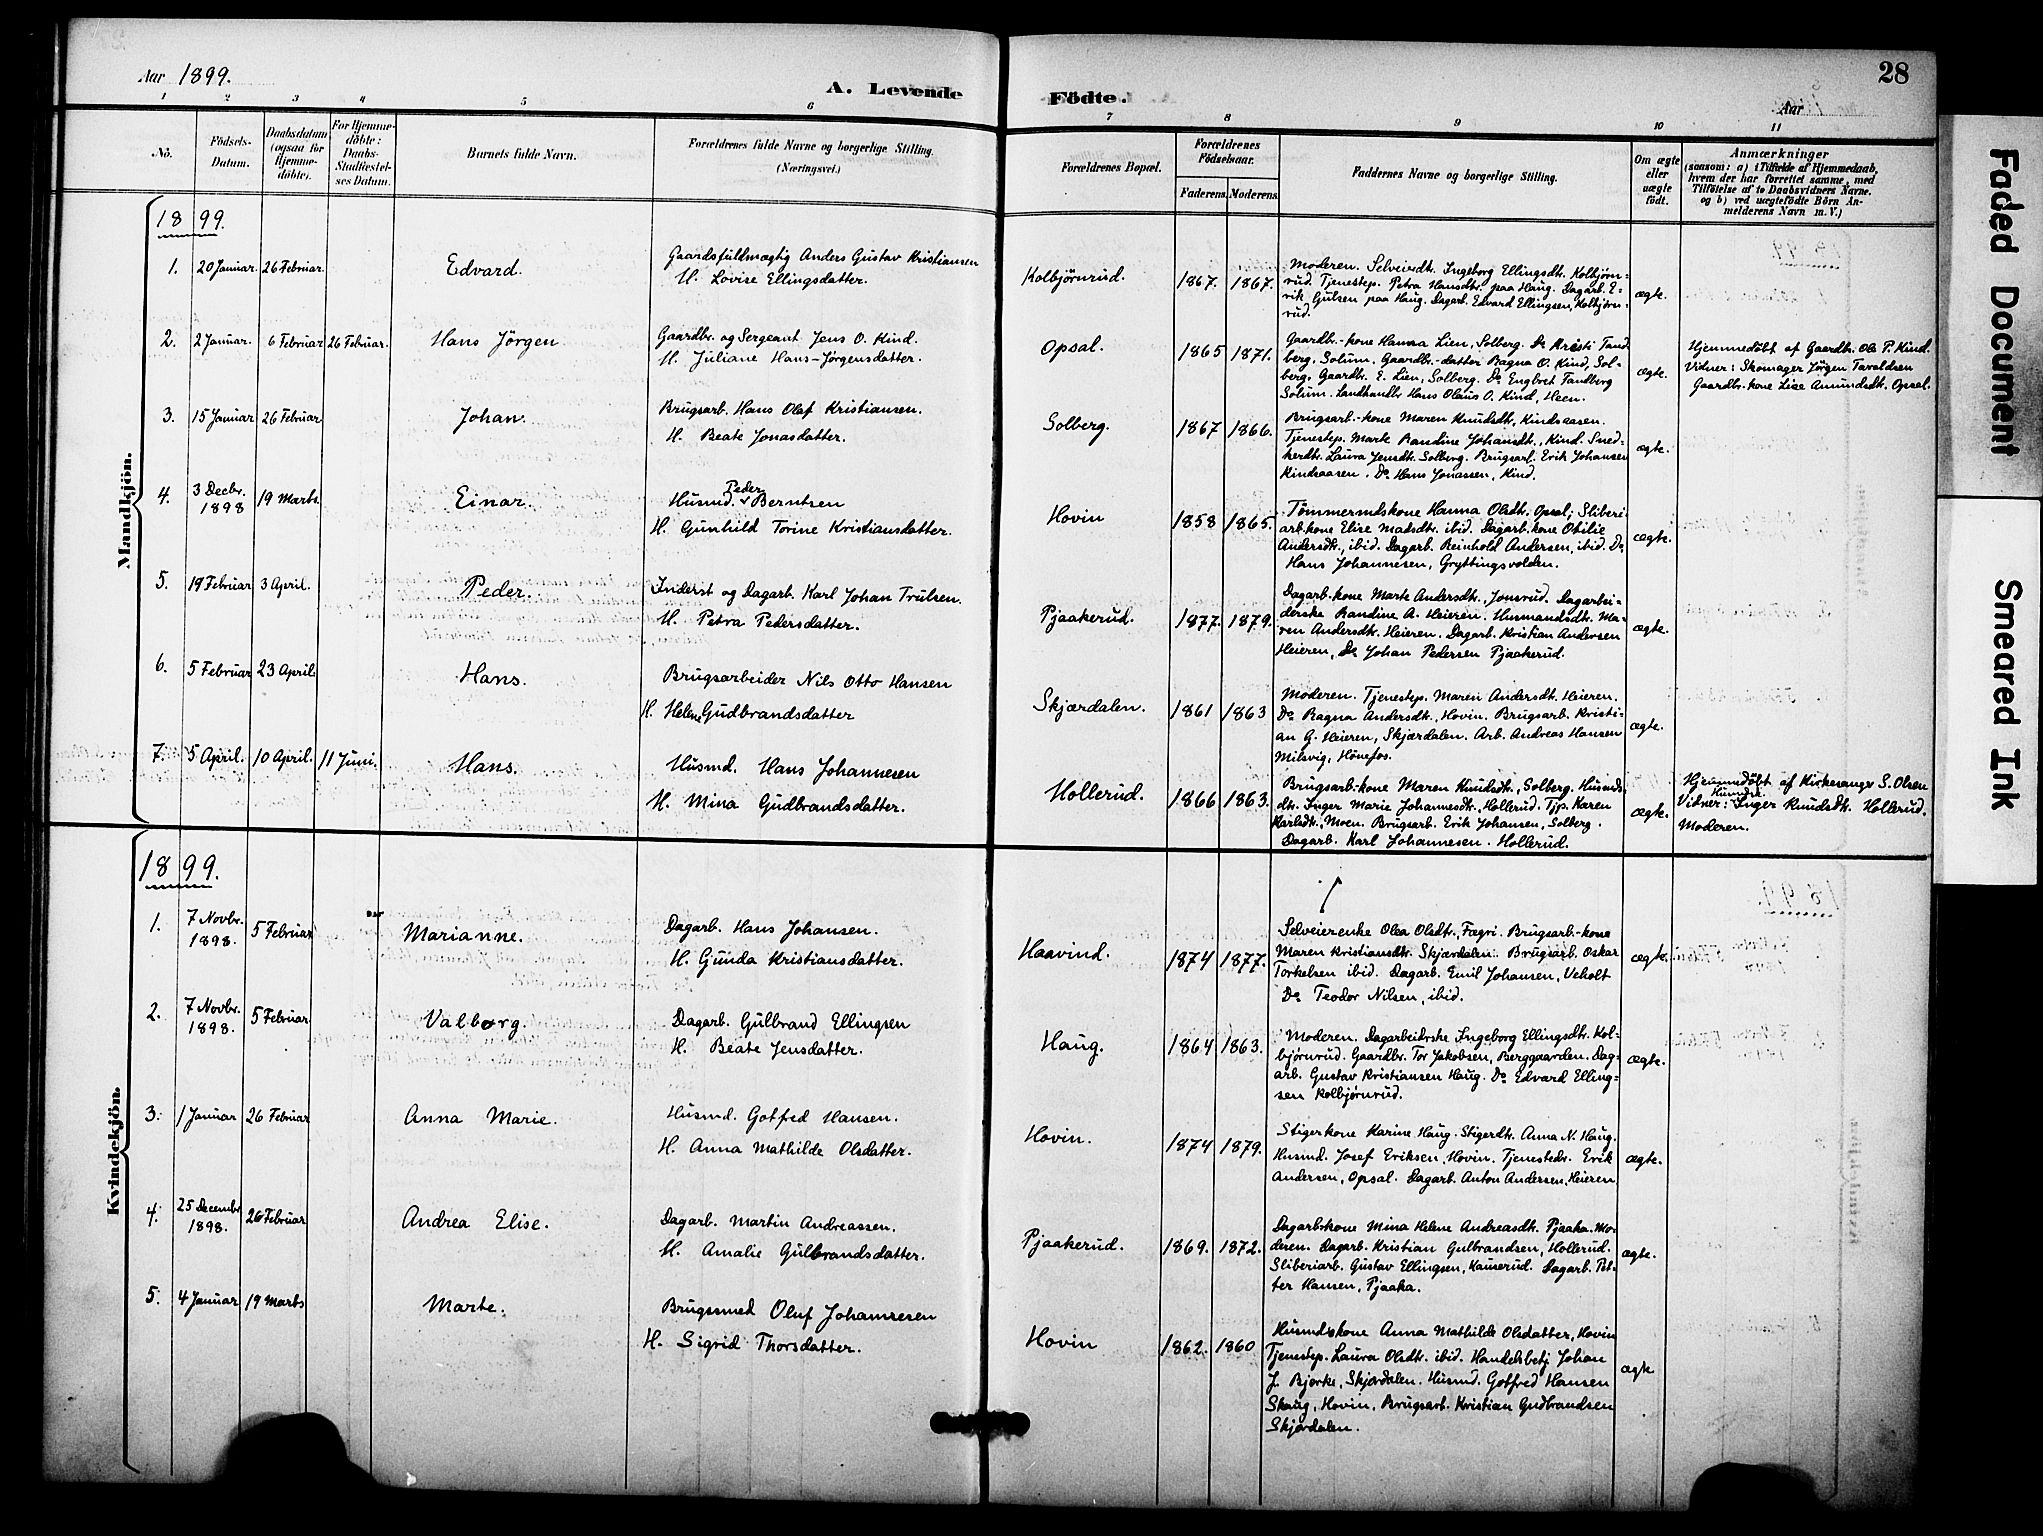 Aar 1899.
A. Levende Födte.
Aar
28
1 2 3 4 5 6 7 8 9 10 11
No.
Födsels-Datum.
Daabsdatum (ogsaa for Hjemme-döbte).
For Hjemme-döbte: Daabs-Stadfæstel-ses Datum.
Barnets fulde Navn.
Forældrenes fulde Navne og borgerlige Stilling. (Næringsvei.)
Forældrenes Bopæl.
Forældrenes Födselsaar.
Faderens. Moderens.
Faddernes Navne og borgerlige Stilling.
Om ægte eller uægte födt.
Anmærkninger
(saasom: a) i Tilfælde af Hjemmedaab,
hvem der har forrettet samme, med
Tilföielse af to Daabsvidners Navne.
og b) ved uægtefödte Börn An-
melderens Navn m. V.)
Mandkjön.
1899.
1. 20 Januar. 26 Februar.
Edvard.
Gaardsfuldmægtig Anders Gustav Kristiansen
H. Lovise Ellingsdatter.
Kolbjørnrud. 1867. 1867.
Moderen. Selveierdtr. Ingeborg Ellingsdtr. Kolbjørn-
rud. Tjenestep. Petra Hansdtr. paa Haug. Dagarb. E-
rik Gulsen paa Haug. Dagarb. Edvard Ellingsen, Kolbjørn-
rud.
ægte.
2. 2 Januar. 6 Februar 26 Februar.
Hans Jörgen
Gaardbr. og Sergeant Jens O. Kind.
H. Juliane Hans-Jørgensdatter.
Opsal. 1865 1871.
Gaardbr.-kone Hanna Lien, Solberg. Do Kristi Tand-
berg, Solum. Gaardbr.-datter Ragna O. Kind, Sol-
berg. Gaardbr. E. Lien, Solberg. Do Engbret Tandberg
Solum. Landhandlr Hans Olaus O. Kind, Heen.
ægte.
Hjemmedöbt af Gaardbr. Ole P. Kind.
Vidner: Skomager Jörgen Taraldsen
Gaardbr. kone Lise Amundsdtr. Opsal.
3. 15 Januar 26 Februar
Johan.
Brugsarb. Hans Olaf Kristiansen.
H. Beate Jonasdatter.
Solberg. 1867 1866.
Brugsarb.-kone Maren Knudsdtr, Kindsaasen.
Tjenestep. Marte Randine Johansdtr., Kind. Sned-
kerdtr. Laura Jensdtr. Solberg. Brugsarb. Erik Johansen
Kindsaasen. Do Hans Jonassen, Kind.
ægte.
4. 3 Decbr. 1898 19 Marts.
Einar.
Husmd. Peder Berntsen
H. Gunhild Torine Kristiansdatter.
Hovin 1858 1865.
Tömmermdskone Hanna Olsdtr. Opsal; Sliberi-
arb.kone Elise Madsdtr. ibid. Dagarb.kone Otilie
Andersdtr., ibid. Dagarb. Reinhold Andersen, ibid. Do
Hans Johannesen, Gryttingsvolden.
ægte.
5. 19 Februar 3 April.
Peder.
Inderst og Dagarb. Karl Johan Trulsen.
H. Petra Pedersdatter.
Pjaakerud. 1877. 1879.
Dagarb.kone Marte Andersdtr., Jonsrud. Dagarbei-
derske Randine A. Heieren. Husmandsdtr. Ma-
ren Andersdtr. Heieren. Dagarb. Kristian Andersen
Heieren, Do Johan Pedersen Pjaakerud.
ægte.
6. 5 Februar 23 April.
Hans.
Brugsarbeider Nils Otto Hansen
H. Helene Gudbrandsdatter
Skjærdalen. 1861 1863
Moderen. Tjenestep. Maren Andersdtr. Heieren.
Do Ragna Andersdtr., Hovin. Brugsarb. Kristi-
an G. Heieren, Skjærdalen. Arb. Andreas Hansen
Milsvig, Hönefos.
ægte.
7. 5 April. 10 April. 11 Juni.
Hans.
Husmd. Hans Johannesen
H. Mina Gudbrandsdatter.
Hollerud. 1866 1863.
Brugsarb.kone Maren Knudsdtr., Solberg. Husmds-
dtr. Inger Marie Johannesdtr., Hollerud. Tjp. Karen
Karlsdtr., Moen. Brugsarb. Erik Johansen, Solberg.
Dagarb. Karl Johannesen. Hollerud.
ægte.
Hjemmedöbt af Kirkesanger S. Olsen
Vidner: Inger Knudsdtr. Hollerud.
Moderen.
Kvindekjön.
1899.
1. 7 Novbr. 1898. 5 Februar
Marianne.
Dagarb. Hans Johansen.
H. Gunda Kristiansdatter.
Haavind. 1874 1877.
Selveierenke Olea Olsdtr., Fægri. Brugsarb.-kone
Maren Kristiansdtr. Skjærdalen. Brugsarb. Oskar
Torkelsen ibid. Dagarb. Emil Johansen, Veholt
Do Teodor Nilsen, ibid.
ægte.
2. 7 Novbr. 1898. 5 Februar
Valborg.
Dagarb. Gulbrand Ellingsen
H. Beate Jensdatter.
Haug. 1864 1863.
Moderen. Dagarbeidrske Ingeborg Ellingsdtr. Kol-
bjørnrud. Gaardbr. Tor Jakobsen, Berggaarden. Dag-
arb. Gustav Kristiansen Haug. Do Edvard Elling-
sen Kolbjørnrud.
ægte.
3. 1 Januar 26 Februar
Anna Marie.
Husmd. Gotfred Hansen.
H. Anna Mathilde Olsdatter.
Hovin. 1874 1879.
Stigerkone Karine Haug. Stigerdtr. Anna N. Haug.
Husmd. Josef Eriksen, Hovin. Tjenestedr. Erik
Andersen, Opsal. Dagarb. Anton Andersen, Heieren
ægte.
4. 25 Decembr 1898. 26 Februar
Andrea Elise.
Dagarb. Martin Andreassen.
H. Amalie Gulbrandsdatter.
Pjaakerud. 1869. 1872.
Dagarb.kone Mina Helene Andreasdtr. Pjaaka. Mo-
deren. Dagarb. Kristian Gulbrandsen, Hollerud.
Sliberiarb. Gustav Ellingsen, Kauserud. Dagarb. Pet-
ter Hansen, Pjaaka.
ægte.
5. 4 Januar 19 Marts
Marte.
Brugssmed Oluf Johannesen
H. Sigrid Thorsdatter.
Hovin 1862. 1860
Husmdskone Anna Mathilde Olsdatter, Hovin
Tjenestep. Laura Olsdtr. ibid. Handelsbetj. Johan
J. Bjørke, Skjærdalen. Husmd. Gotfred Hansen
Skaug, Hovin. Brugsarb. Kristian Gudbrandsen
Skjærdalen.
ægte
Faded Document
Smeared Ink